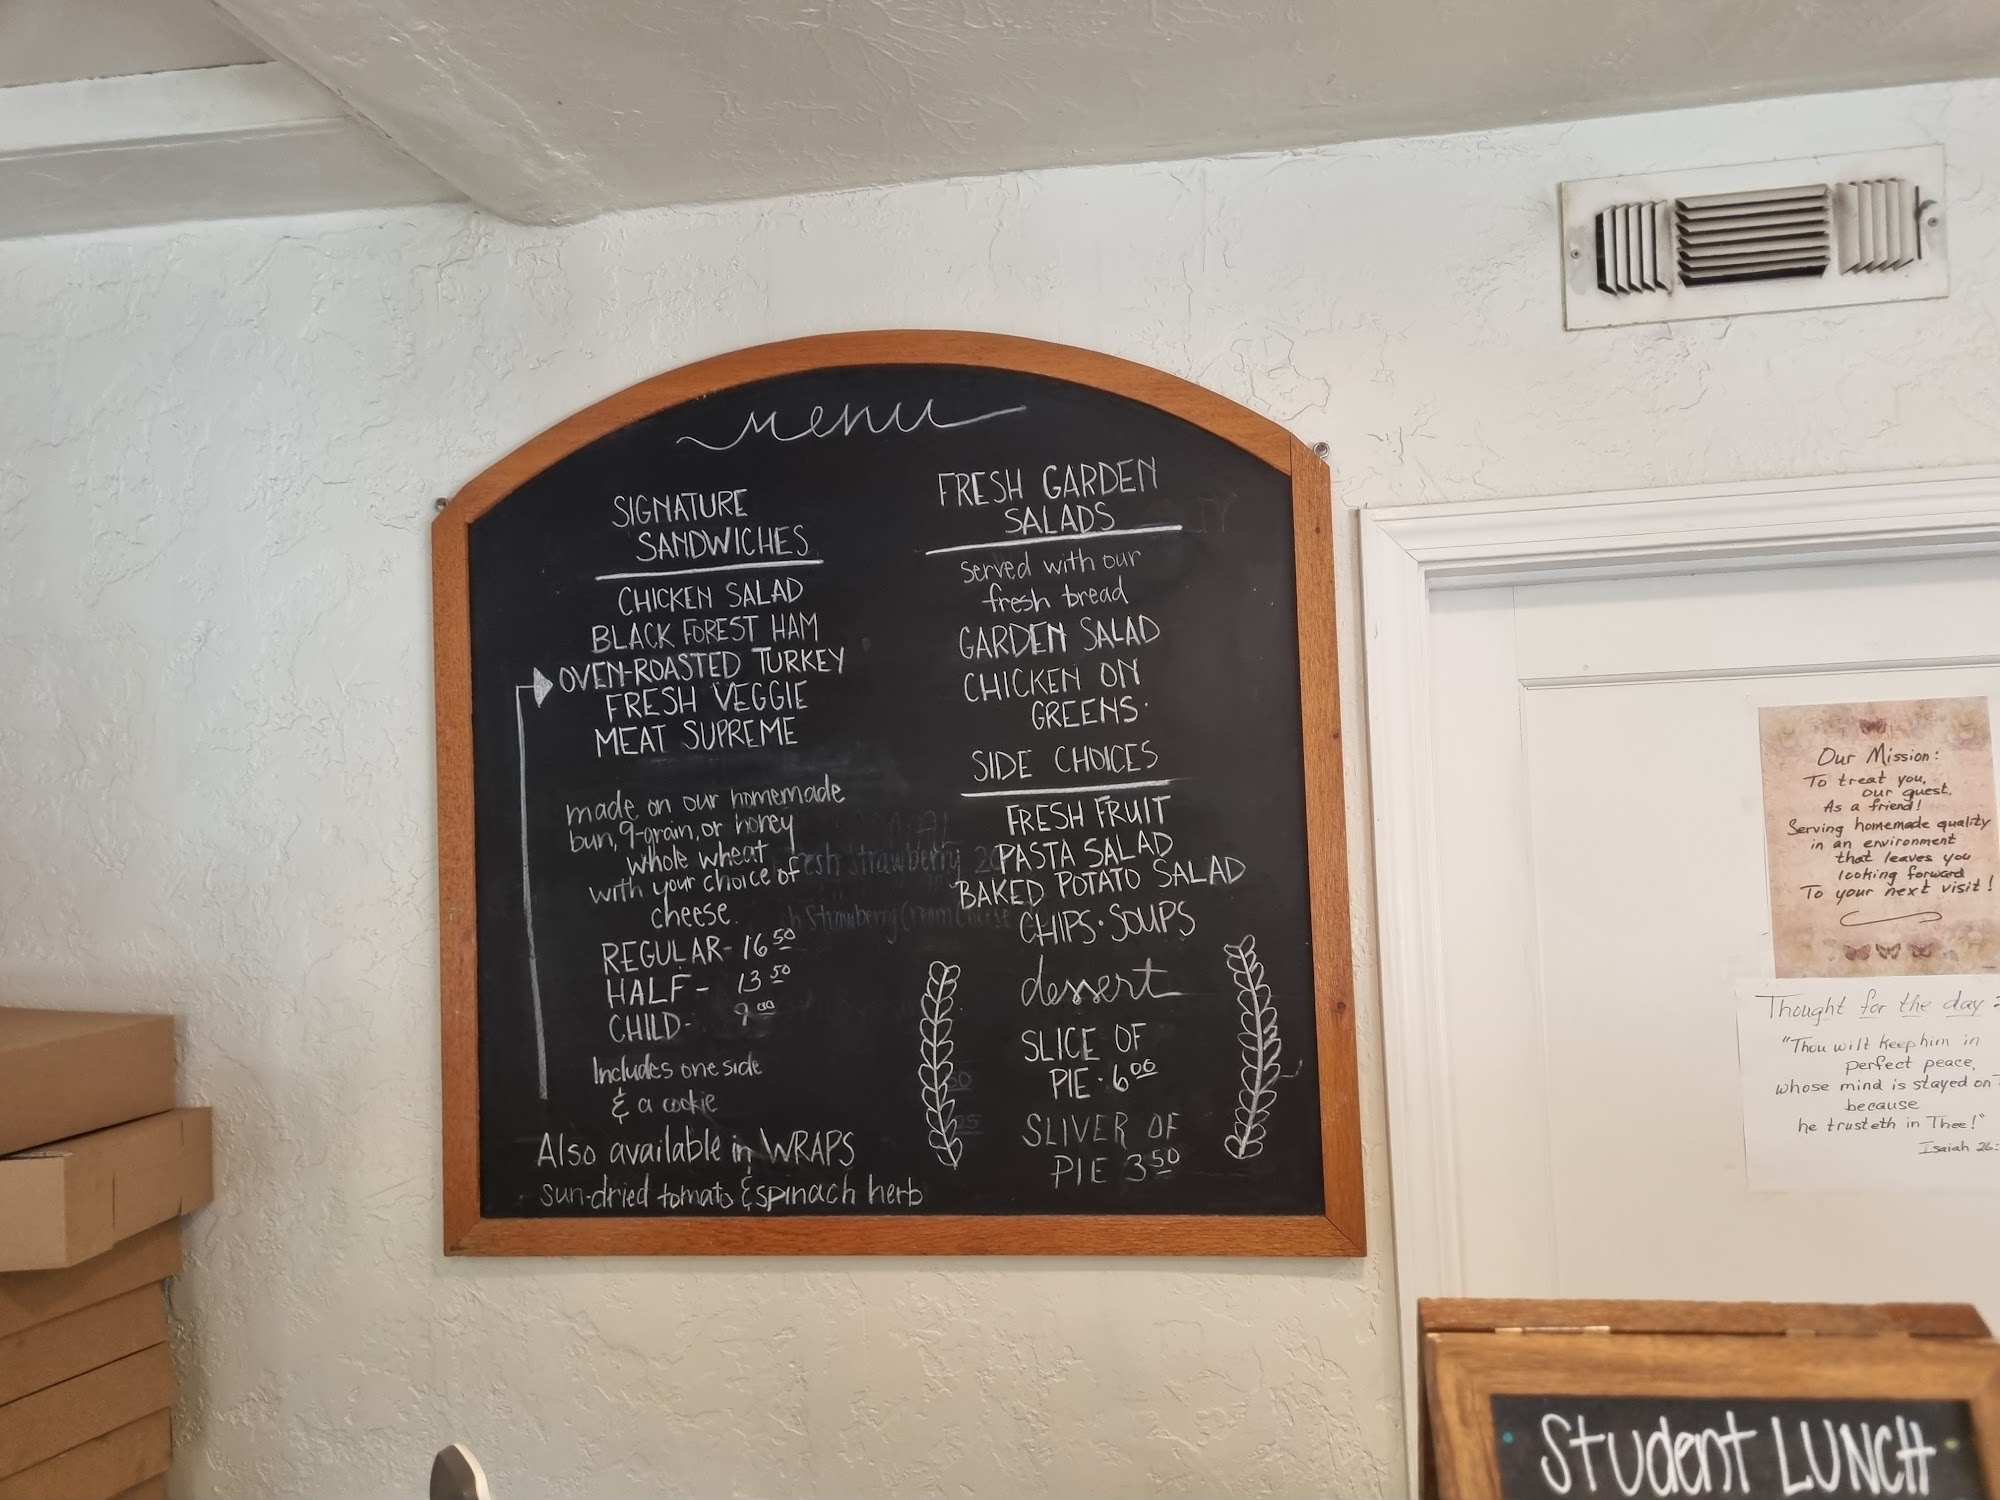 menu
SIGNATURE
SANDWICHES
CHICKEN SALAD
BLACK FOREST HAM
OVEN-ROASTED TURKEY
FRESH VEGGIE
MEAT SUPREME
made on our homemade
bun, 9-grain, or honey
whole wheat
with your choice of
cheese.
REGULAR- 16 50
HALF- 13 50
CHILD- 9 00
Includes one side
& a cookie
Also available in WRAPS
sun-dried tomato & spinach herb
FRESH GARDEN
SALADS
served with our
fresh bread
GARDEN SALAD
CHICKEN ON
GREENS.
SIDE CHOICES
FRESH FRUIT
PASTA SALAD
BAKED POTATO SALAD
CHIPS · SOUPS
dessert
SLICE OF
PIE · 6 00
SLIVER OF
PIE 3 50
Our Mission:
To treat you,
our guest,
As a friend!
Serving homemade quality
in an environment
that leaves you
looking forward
To your next visit!
Thought for the day:
"Thou wilt keep him in
perfect peace,
whose mind is stayed on
because
he trusteth in Thee!"
Isaiah 26:
Student LUNCH